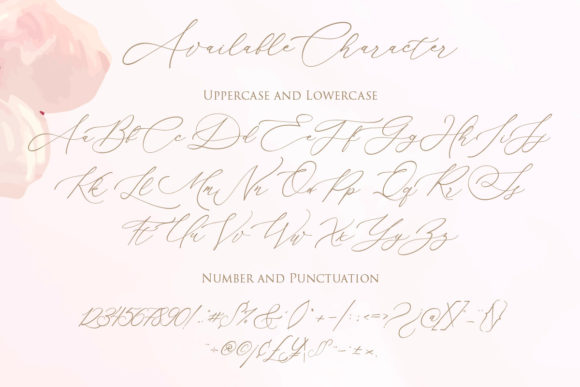 Available Character
Uppercase and Lowercase
Aa Bb Cc Dd Ee Ff Gg Hh Ii Jj
Kk Ll Mm Nn Oo Pp Qq Rr Ss
Tt Uu Vv Ww Xx Yy Zz
Number and Punctuation
1234567890!